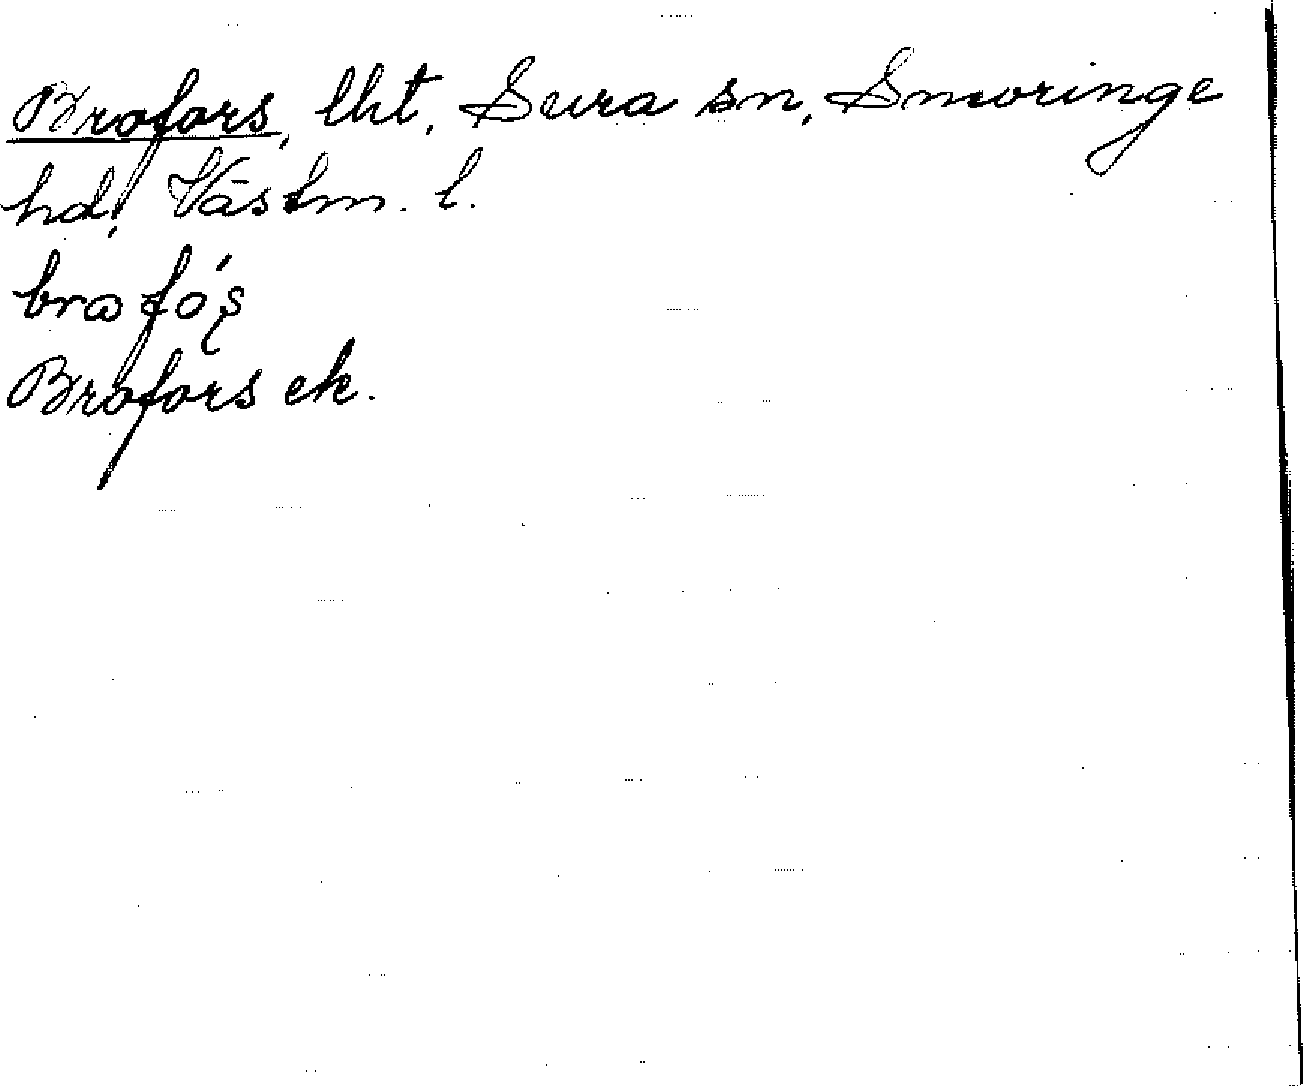 Brofors, lht, Sura sn, Snevringe
hd, Västm. l.
brofó̀ʂ
Brofors ek.